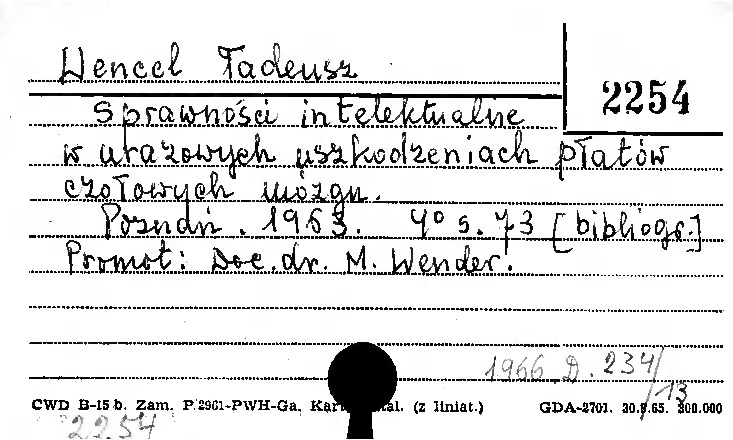 Wencel Tadeusz
2254
Sprawności intelektualne
w urazowych uszkodzeniach płatów
czołowych mózgu.
Poznań. 1963. 4° s. 73 [bibliogr.]
Promot: Doc. dr. M. Wender.
1966 D. 234/13
CWD B-15 b. Zam. P.2961-PWH-Ga. (z liniat.) GDA-2701. 30.9.65. 300.000
2254